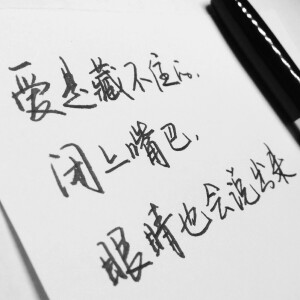 爱是藏不住的,
闭上嘴巴,
眼睛也会说出来